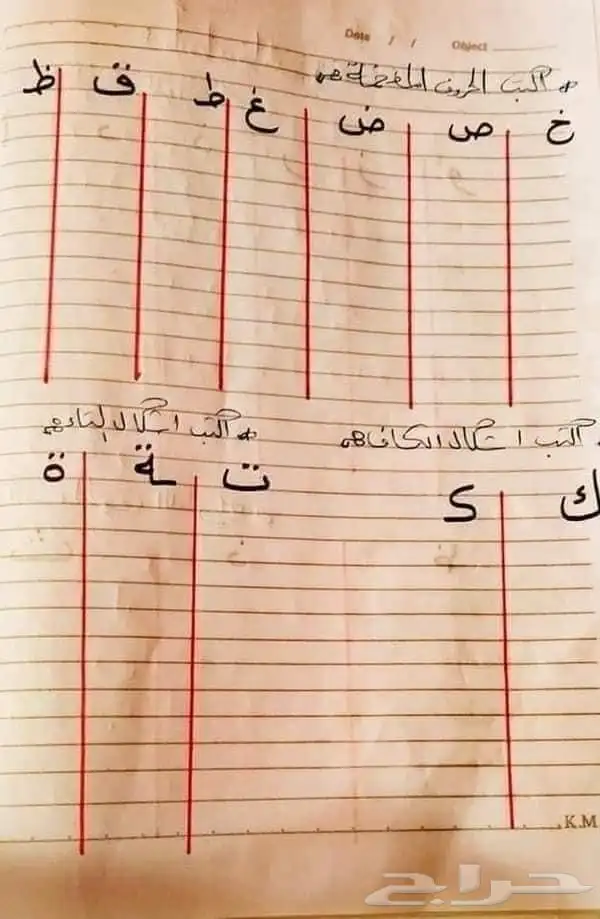 Date / / Object
* اكتب الحروف المفخمة هـ
خ ص ض غ ط ق ظ
اكتب اشكال الكاف هـ
ك كـ
* اكتب اشكال التاء هـ
ت ـة ة
K.M
حراج